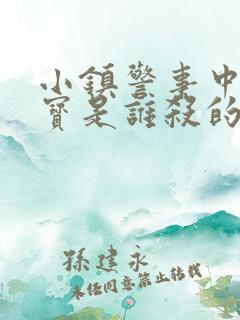 小鎮警事中
寶是誰殺的
孫建永
未經同意禁止轉載